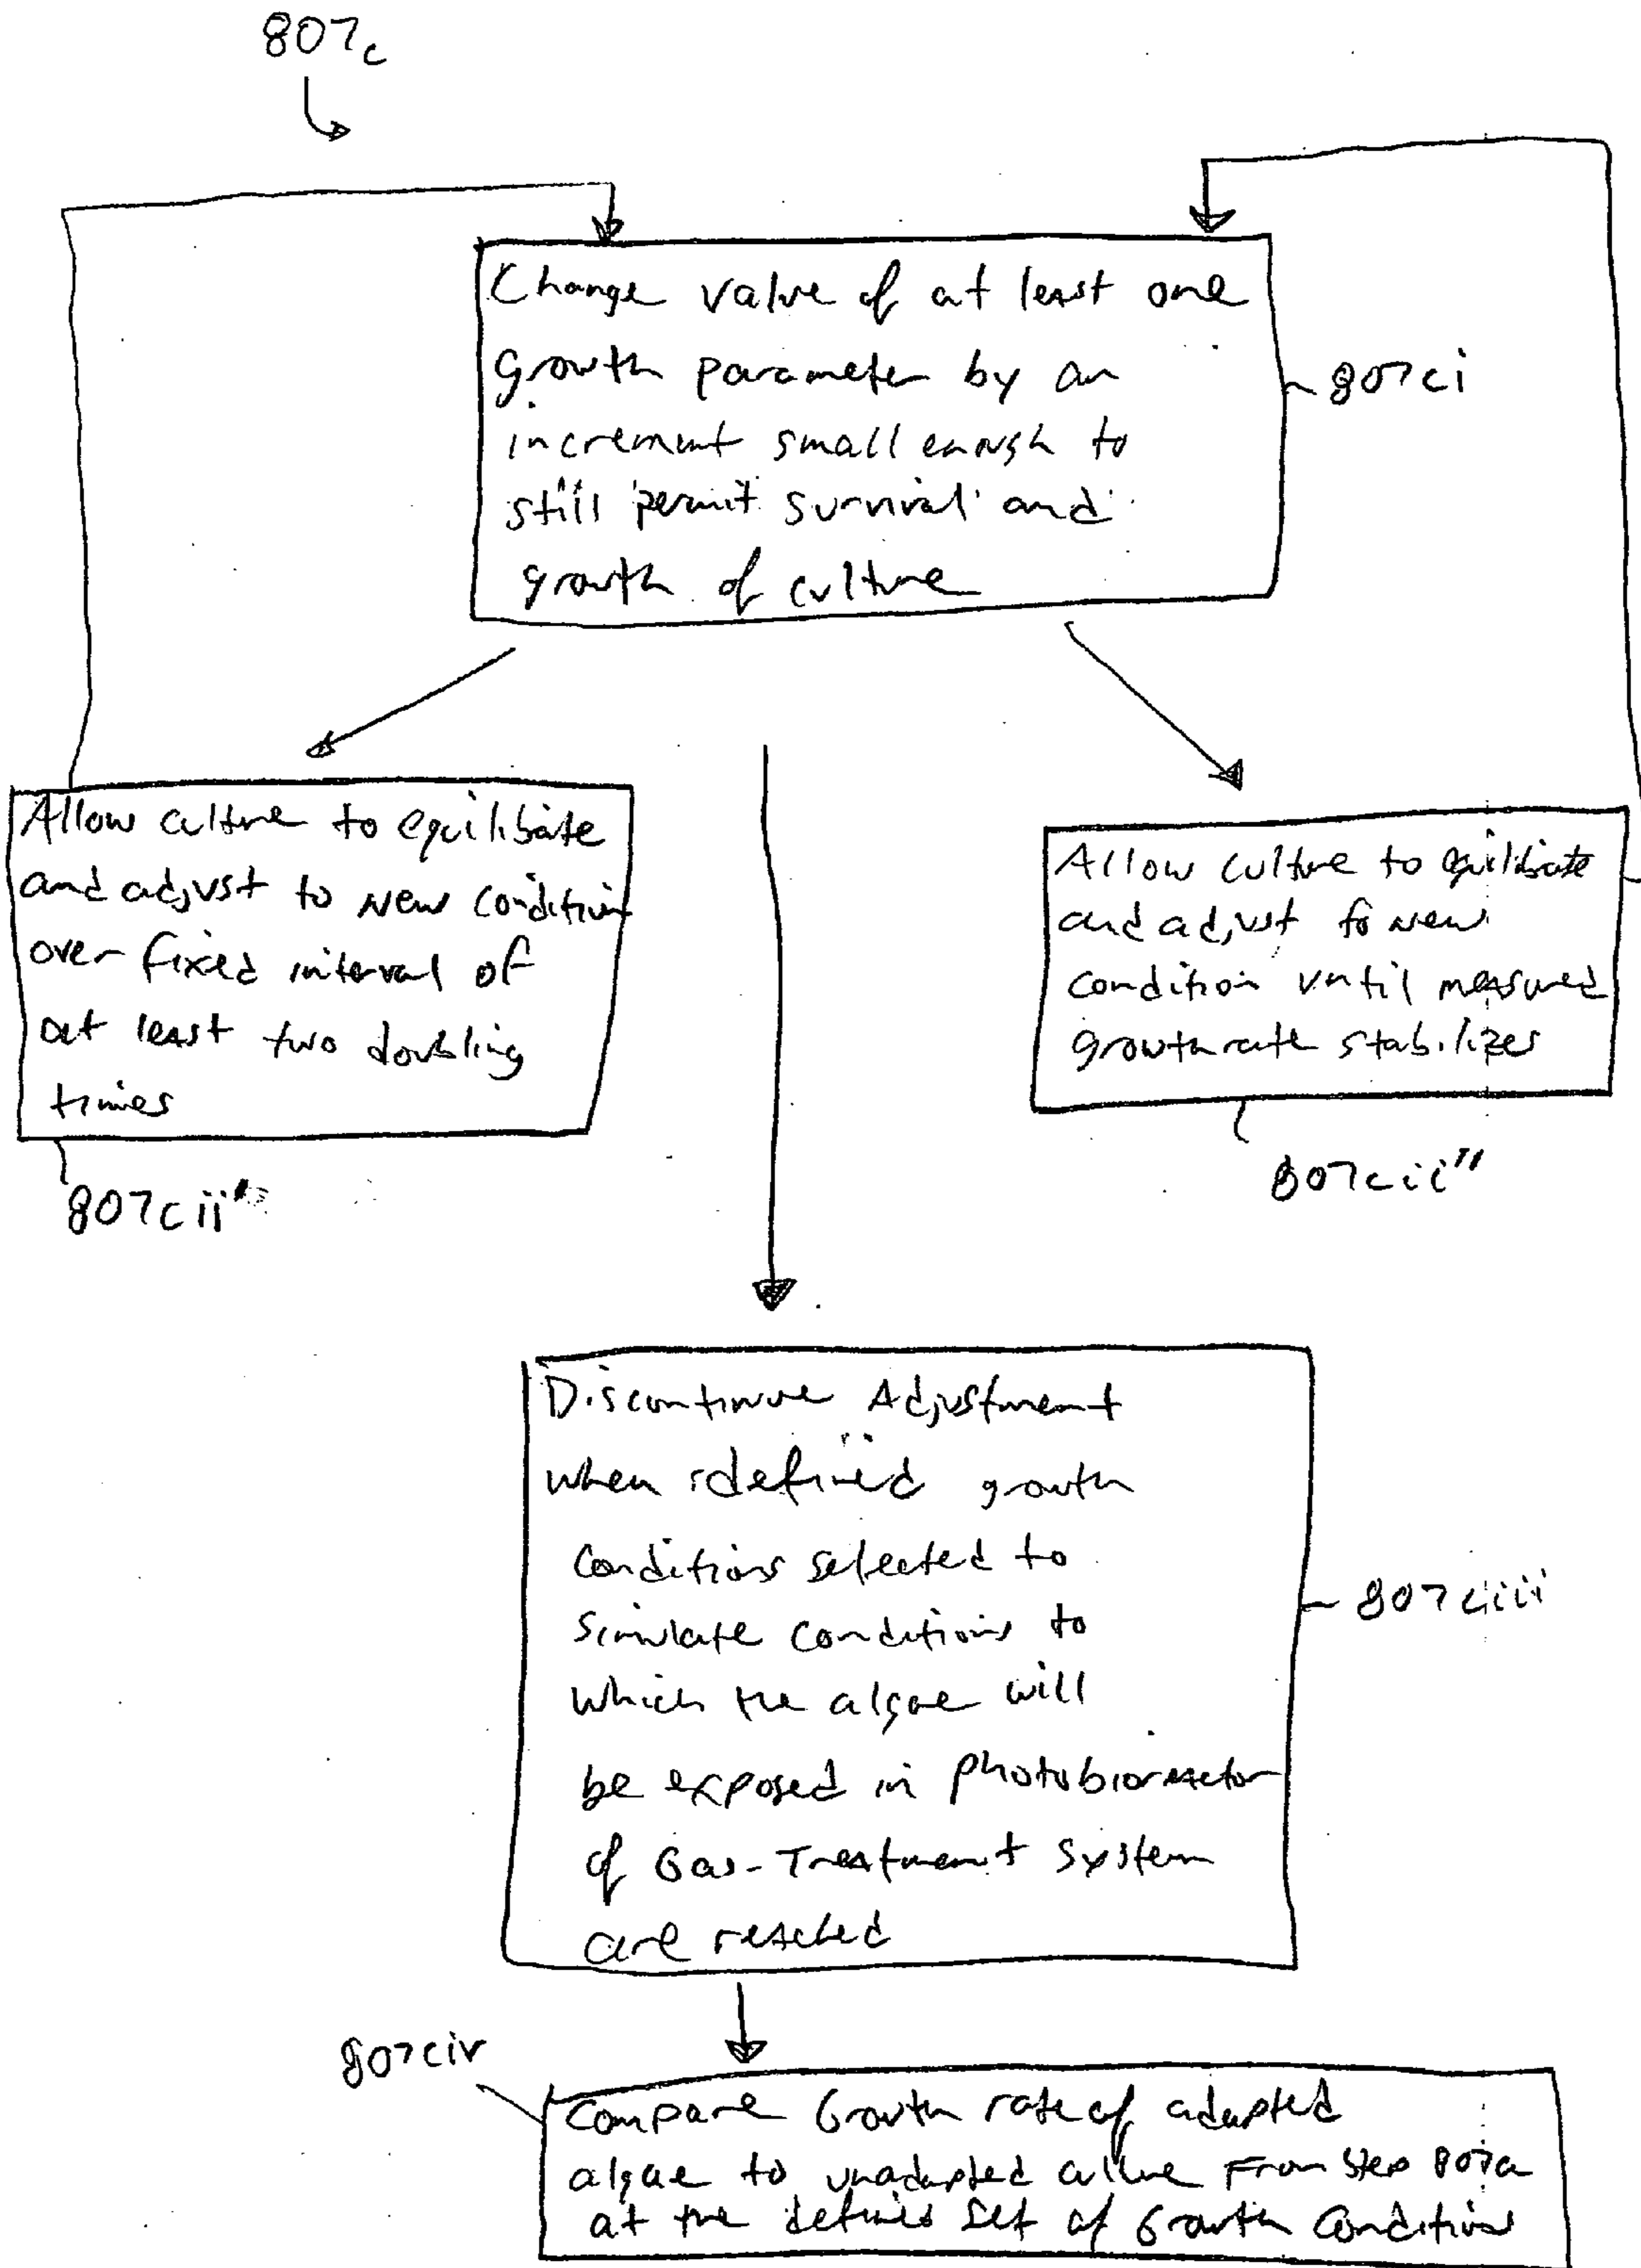 807c
Change value of at least one
growth parameter by an
increment small enough to
still permit survival and
growth of culture
807ci
Allow culture to equilibate
and adjust to new condition
over fixed interval of
at least two doubling
times
807cii'
Allow culture to equilibate
and adjust to new
condition until measured
growth rate stabilizes
807cii"
Discontinue Adjustment
when defined growth
conditions selected to
simulate conditions to
which the algae will
be exposed in photobioreactor
of Gas-Treatment System
are reached
807ciii
807civ
Compare Growth rate of adapted
algae to unadapted culture From Step 807a
at the defined Set of Growth Conditions